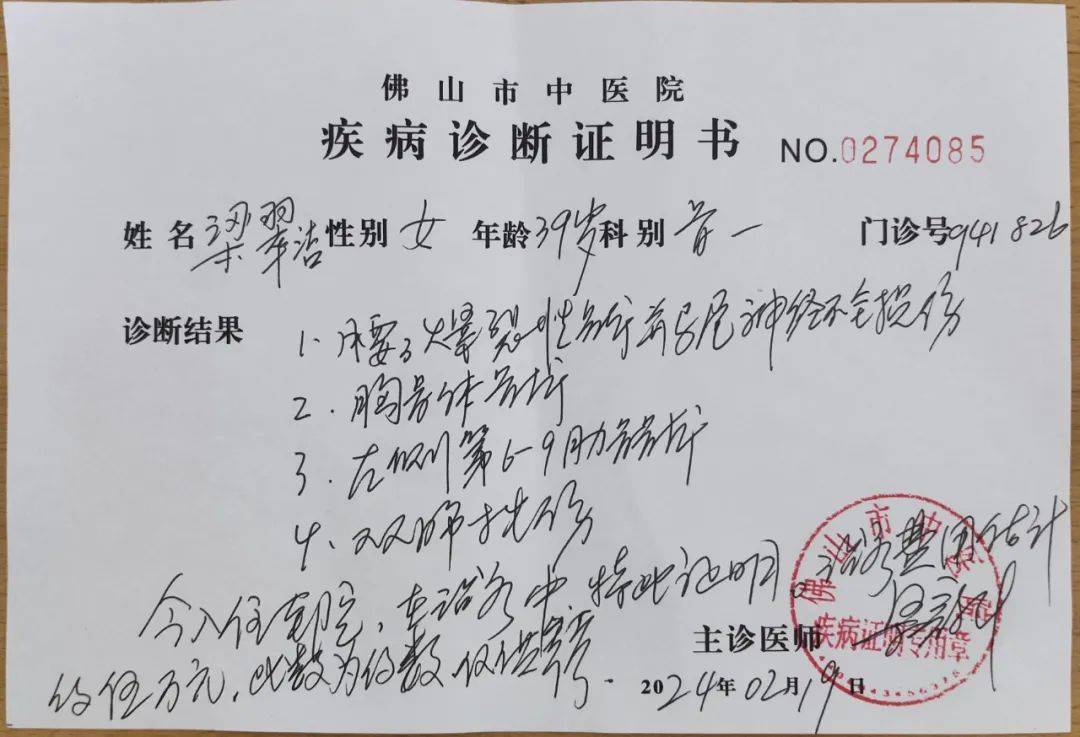 佛山市中医院
疾病诊断证明书 NO.0274085
姓名 梁翠洁 性别 女 年龄 39岁 科别 骨一 门诊号 941826
诊断结果 1. 腰3爆裂性骨折并马尾神经不全损伤
2. 胸骨体骨折
3. 左侧第6-9肋骨骨折
4. 双肺挫伤
今入住我院,在诊治中,特此证明。诊治费用估计
约伍万元,此数为约数,仅供参考.
主诊医师
佛山市中医院
疾病证明专用章
2024年02月19日